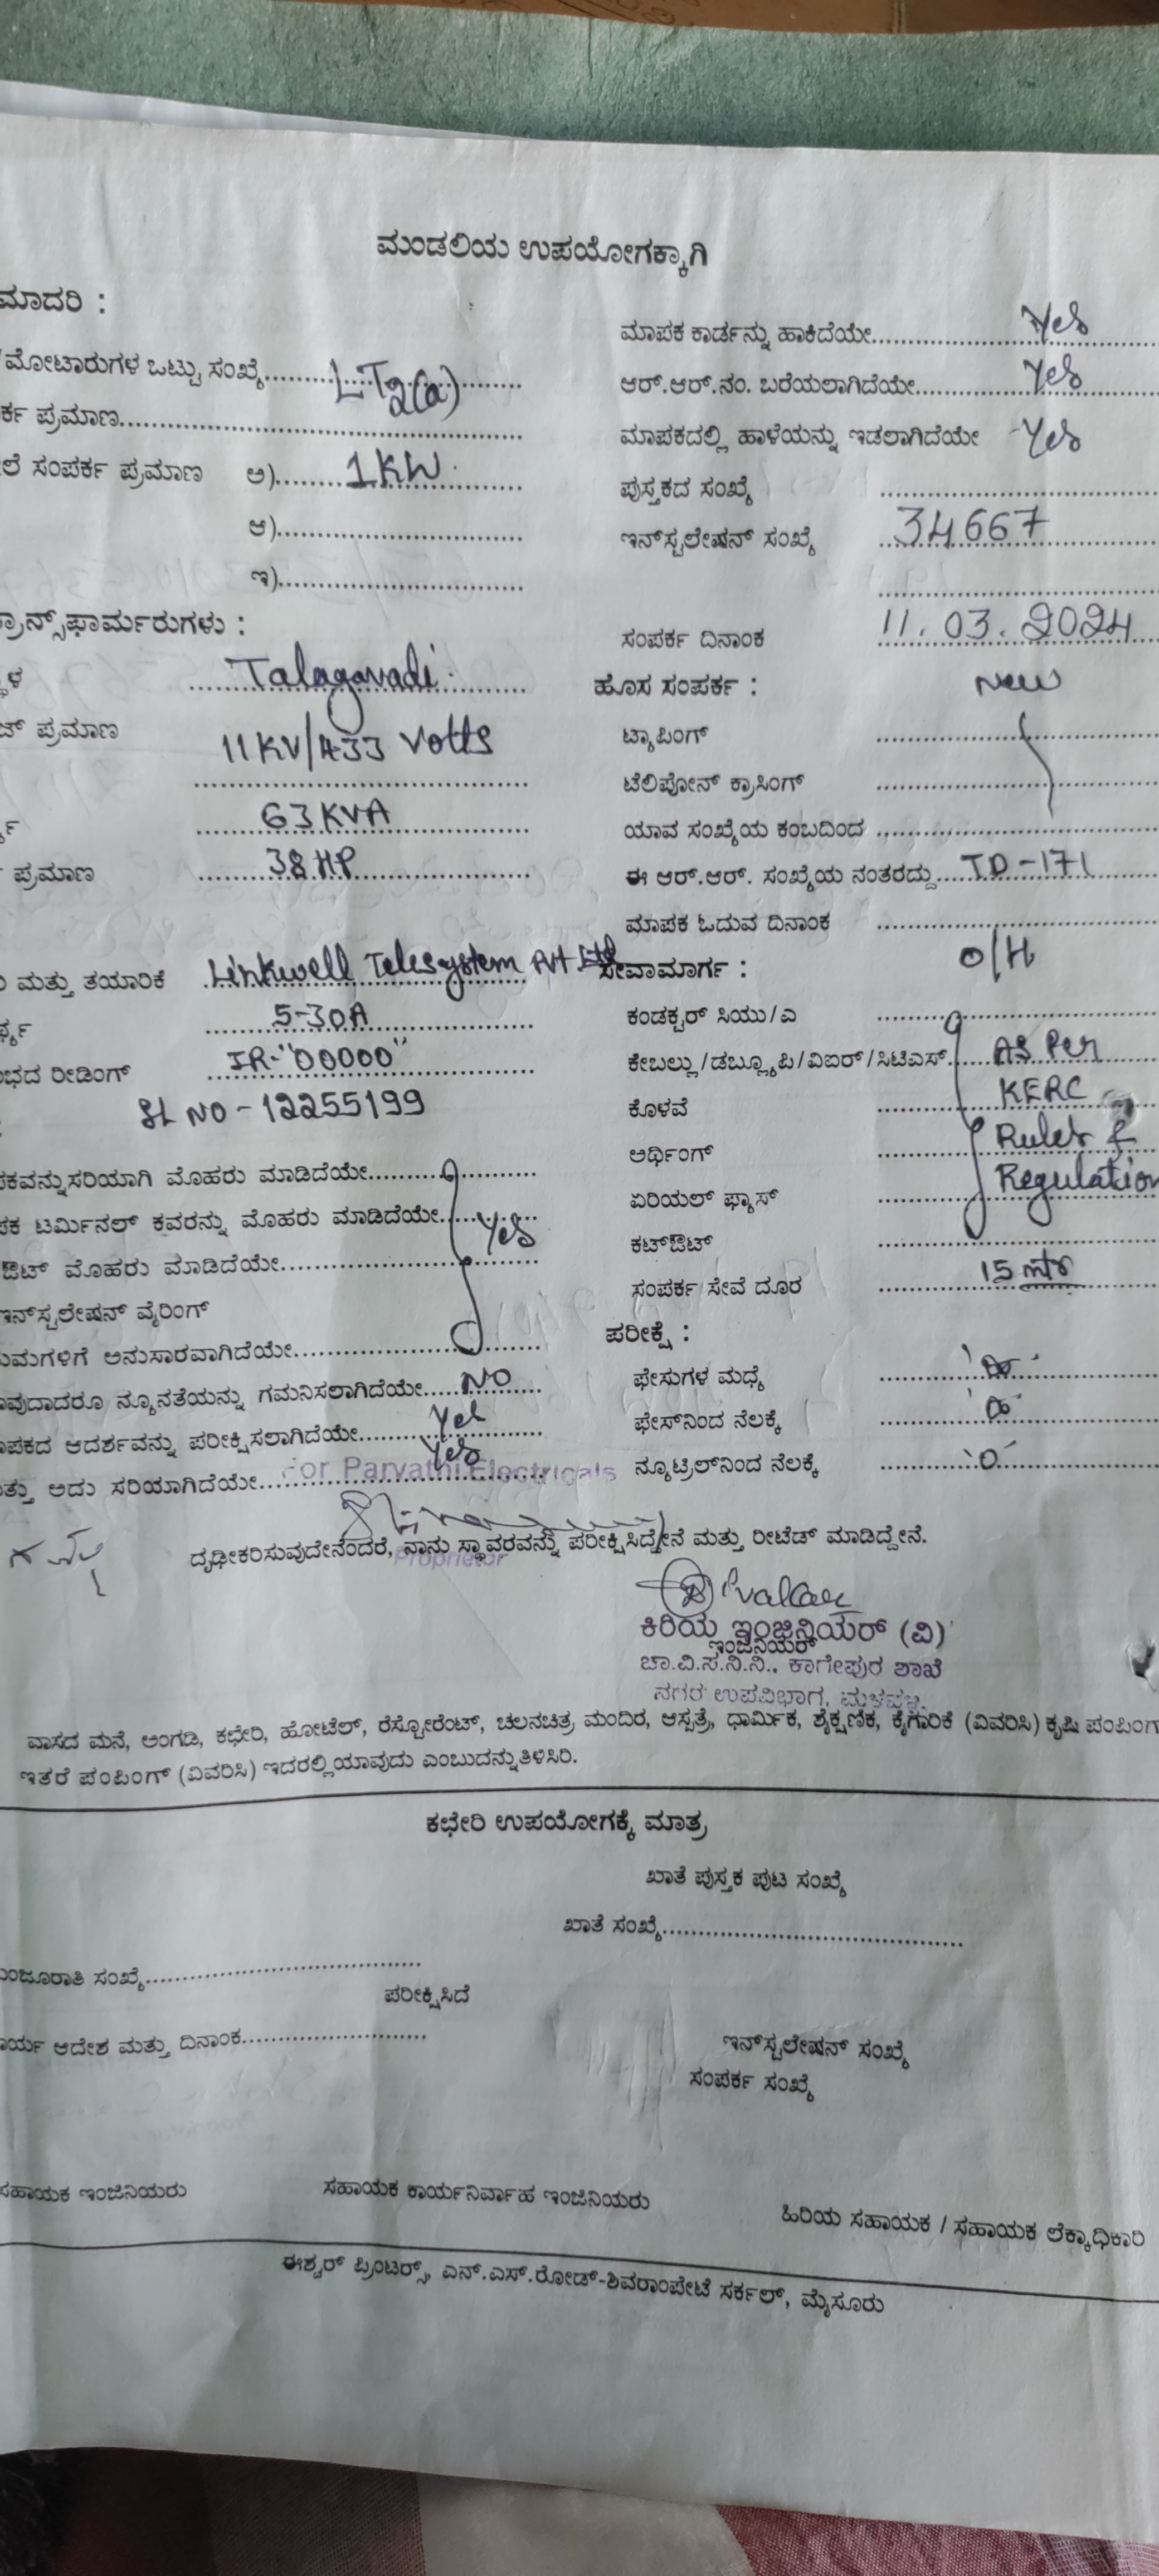 ಮಂಡಲಿಯ ಉಪಯೋಗಕ್ಕಾಗಿ
ಮಾದರಿ :
/ಮೋಟಾರುಗಳ ಒಟ್ಟು ಸಂಖ್ಯೆ......... LT2(a)
ರ್ಕ ಪ್ರಮಾಣ.........
ಲೆ ಸಂಪರ್ಕ ಪ್ರಮಾಣ ಅ)...... 1KW
ಆ).........
ಇ).........
ಟ್ರಾನ್ಸ್‌ಫಾರ್ಮರುಗಳು :
ಸ್ಥಳ ......... Talagavadi
ಜ್ ಪ್ರಮಾಣ 11KV/433 Volts
63 KVA
ಪ್ರಮಾಣ ......... 38 HP
ಮತ್ತು ತಯಾರಿಕೆ Linkwell Telesystem Pvt Ltd
5-30A
ಭದ ರೀಡಿಂಗ್ IR-"00000"
SL NO - 12255199
ಪಕವನ್ನುಸರಿಯಾಗಿ ಮೊಹರು ಮಾಡಿದೆಯೇ.........
ಪಕ ಟರ್ಮಿನಲ್ ಕವರನ್ನು ಮೊಹರು ಮಾಡಿದೆಯೇ...... Yes
ಔಟ್ ಮೊಹರು ಮಾಡಿದೆಯೇ.........
ಇನ್‌ಸ್ಟಲೇಷನ್ ವೈರಿಂಗ್
ಯಮಗಳಿಗೆ ಅನುಸಾರವಾಗಿದೆಯೇ.........
ಾವುದಾದರೂ ನ್ಯೂನತೆಯನ್ನು ಗಮನಿಸಲಾಗಿದೆಯೇ...... NO
ಾಪಕದ ಆದರ್ಶವನ್ನು ಪರೀಕ್ಷಿಸಲಾಗಿದೆಯೇ...... Yes
ತ್ತು ಅದು ಸರಿಯಾಗಿದೆಯೇ...... Yes
For Parvathi Electricals
Proprietor
ಮಾಪಕ ಕಾರ್ಡನ್ನು ಹಾಕಿದೆಯೇ...... Yes
ಆರ್.ಆರ್.ನಂ. ಬರೆಯಲಾಗಿದೆಯೇ...... Yes
ಮಾಪಕದಲ್ಲಿ ಹಾಳೆಯನ್ನು ಇಡಲಾಗಿದೆಯೇ Yes
ಪುಸ್ತಕದ ಸಂಖ್ಯೆ .........
ಇನ್‌ಸ್ಟಲೇಷನ್ ಸಂಖ್ಯೆ 34667
ಸಂಪರ್ಕ ದಿನಾಂಕ 11.03.2024
ಹೊಸ ಸಂಪರ್ಕ : New
ಟ್ಯಾಪಿಂಗ್ .........
ಟೆಲಿಪೋನ್ ಕ್ರಾಸಿಂಗ್ .........
ಯಾವ ಸಂಖ್ಯೆಯ ಕಂಬದಿಂದ .........
ಈ ಆರ್.ಆರ್. ಸಂಖ್ಯೆಯ ನಂತರದ್ದು.... TD-171
ಮಾಪಕ ಓದುವ ದಿನಾಂಕ .........
ಸೇವಾಮಾರ್ಗ : O/H
ಕಂಡಕ್ಟರ್ ಸಿಯು/ಎ .........
ಕೇಬಲ್ಲು/ಡಬ್ಲ್ಯೂಪಿ/ವಿಐರ್/ಸಿಟಿಎಸ್... AS Per
ಕೊಳವೆ ......... KERC
ಅರ್ಥಿಂಗ್ ......... Rules &
ಏರಿಯಲ್ ಫ್ಯಾಸ್ ......... Regulation
ಕಟ್‌ಔಟ್ .........
ಸಂಪರ್ಕ ಸೇವೆ ದೂರ ......... 15 mtr
ಪರೀಕ್ಷೆ :
ಫೇಸುಗಳ ಮಧ್ಯೆ .........
ಫೇಸ್‌ನಿಂದ ನೆಲಕ್ಕೆ .........
ನ್ಯೂಟ್ರಲ್‌ನಿಂದ ನೆಲಕ್ಕೆ ......... '0'
ದೃಢೀಕರಿಸುವುದೇನೆಂದರೆ, ನಾನು ಸ್ಥಾವರವನ್ನು ಪರೀಕ್ಷಿಸಿದ್ದೇನೆ ಮತ್ತು ರೀಟೆಡ್ ಮಾಡಿದ್ದೇನೆ.
ಕಿರಿಯ ಇಂಜಿನಿಯರ್ (ವಿ)
ಇಂಜಿನಿಯರ್
ಚಾ.ವಿ.ಸ.ನಿ.ನಿ., ಕಾಗೇಪುರ ಶಾಖೆ
ನಗರ ಉಪವಿಭಾಗ, ಮಳವಳ್ಳಿ.
ವಾಸದ ಮನೆ, ಅಂಗಡಿ, ಕಛೇರಿ, ಹೋಟೆಲ್, ರೆಸ್ಟೋರೆಂಟ್, ಚಲನಚಿತ್ರ ಮಂದಿರ, ಆಸ್ಪತ್ರೆ, ಧಾರ್ಮಿಕ, ಶೈಕ್ಷಣಿಕ, ಕೈಗಾರಿಕೆ (ವಿವರಿಸಿ) ಕೃಷಿ ಪಂಪಿಂಗ್
ಇತರೆ ಪಂಪಿಂಗ್ (ವಿವರಿಸಿ) ಇದರಲ್ಲಿಯಾವುದು ಎಂಬುದನ್ನುತಿಳಿಸಿರಿ.
ಕಛೇರಿ ಉಪಯೋಗಕ್ಕೆ ಮಾತ್ರ
ಖಾತೆ ಪುಸ್ತಕ ಪುಟ ಸಂಖ್ಯೆ
ಖಾತೆ ಸಂಖ್ಯೆ.........
ಮಂಜೂರಾತಿ ಸಂಖ್ಯೆ.........
ಪರೀಕ್ಷಿಸಿದೆ
ಾರ್ಯ ಆದೇಶ ಮತ್ತು ದಿನಾಂಕ.........
ಇನ್‌ಸ್ಟಲೇಷನ್ ಸಂಖ್ಯೆ
ಸಂಪರ್ಕ ಸಂಖ್ಯೆ
ಸಹಾಯಕ ಇಂಜಿನಿಯರು
ಸಹಾಯಕ ಕಾರ್ಯನಿರ್ವಾಹ ಇಂಜಿನಿಯರು
ಹಿರಿಯ ಸಹಾಯಕ / ಸಹಾಯಕ ಲೆಕ್ಕಾಧಿಕಾರಿ
ಈಶ್ವರ್ ಪ್ರಿಂಟರ್ಸ್, ಎನ್.ಎಸ್.ರೋಡ್-ಶಿವರಾಂಪೇಟೆ ಸರ್ಕಲ್, ಮೈಸೂರು